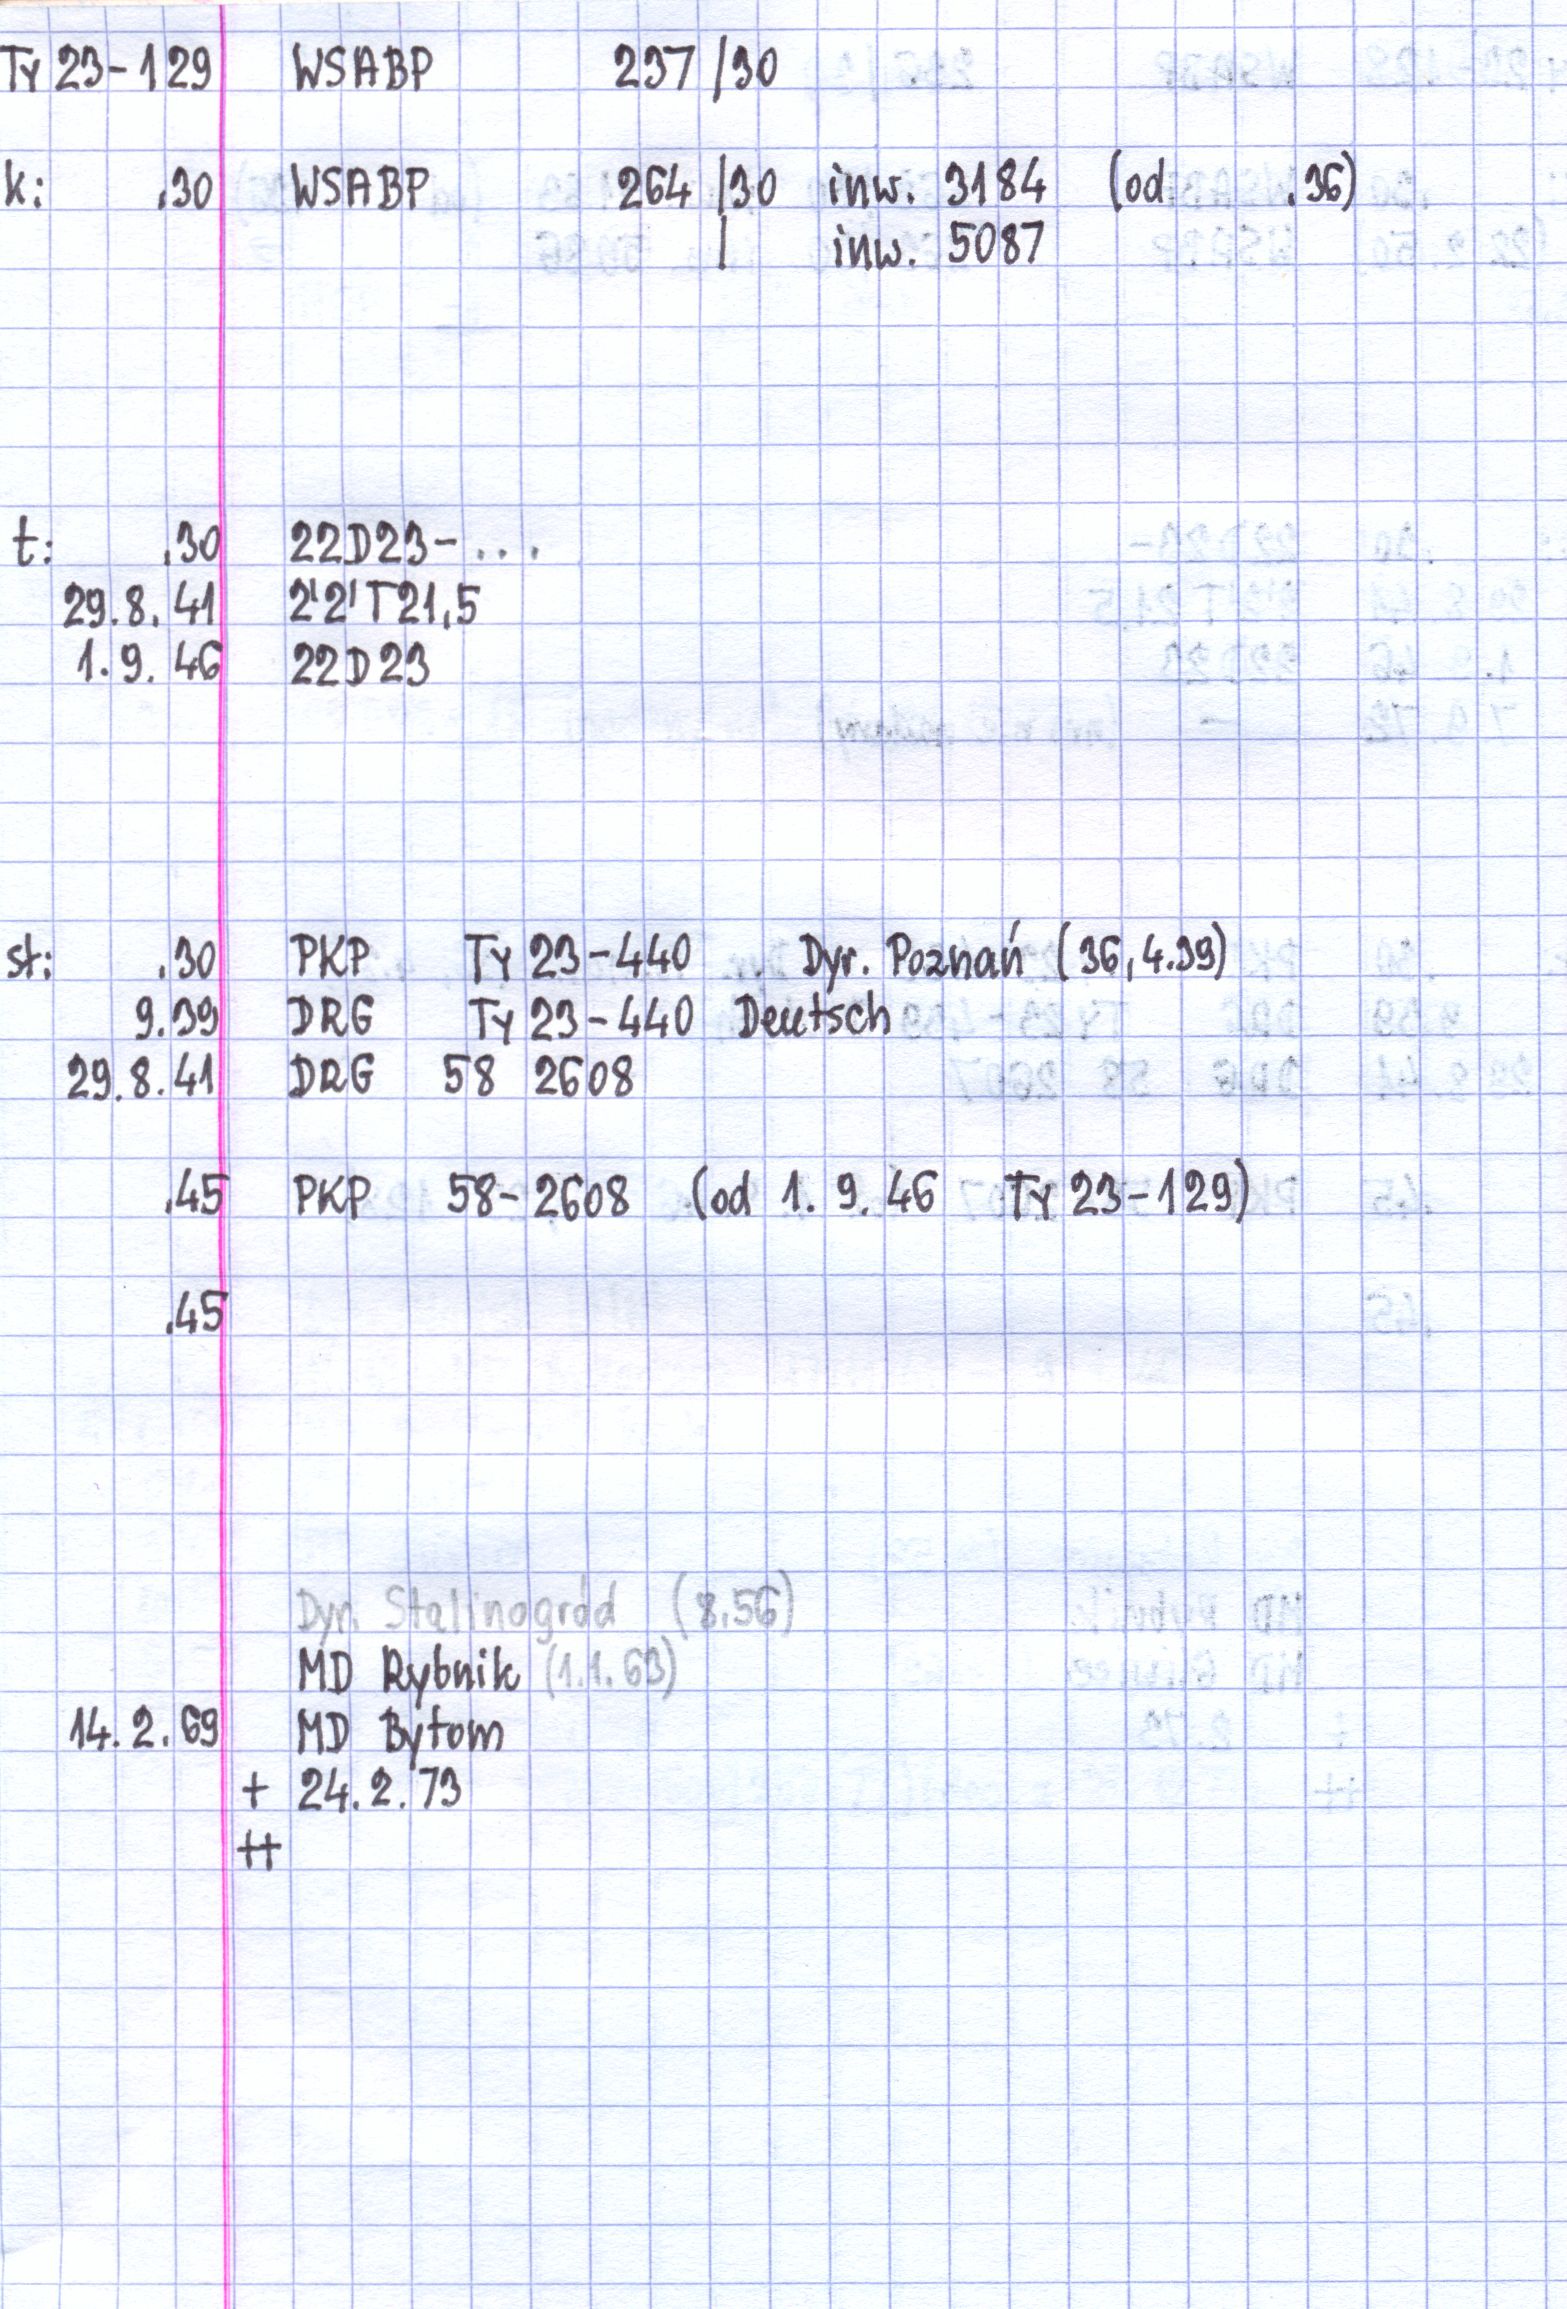 Ty 23-129 WSABP 237/30
k: .30 WSABP 264/30 inw. 3184 (od .36)
| inw. 5087
t: .30 22D23-...
29.8.41 2'2'T21,5
1.9.46 22D23
st: .30 PKP Ty 23-440 Dyr. Poznań (36, 4.39)
9.39 DRG Ty 23-440 Deutsch
29.8.41 DRG 58 2608
.45 PKP 58-2608 (od 1.9.46 Ty 23-129)
.45
Dyr. Stalinogród (8.56)
MD Rybnik (1.1.63)
14.2.69 MD Bytom
+ 24.2.73
++